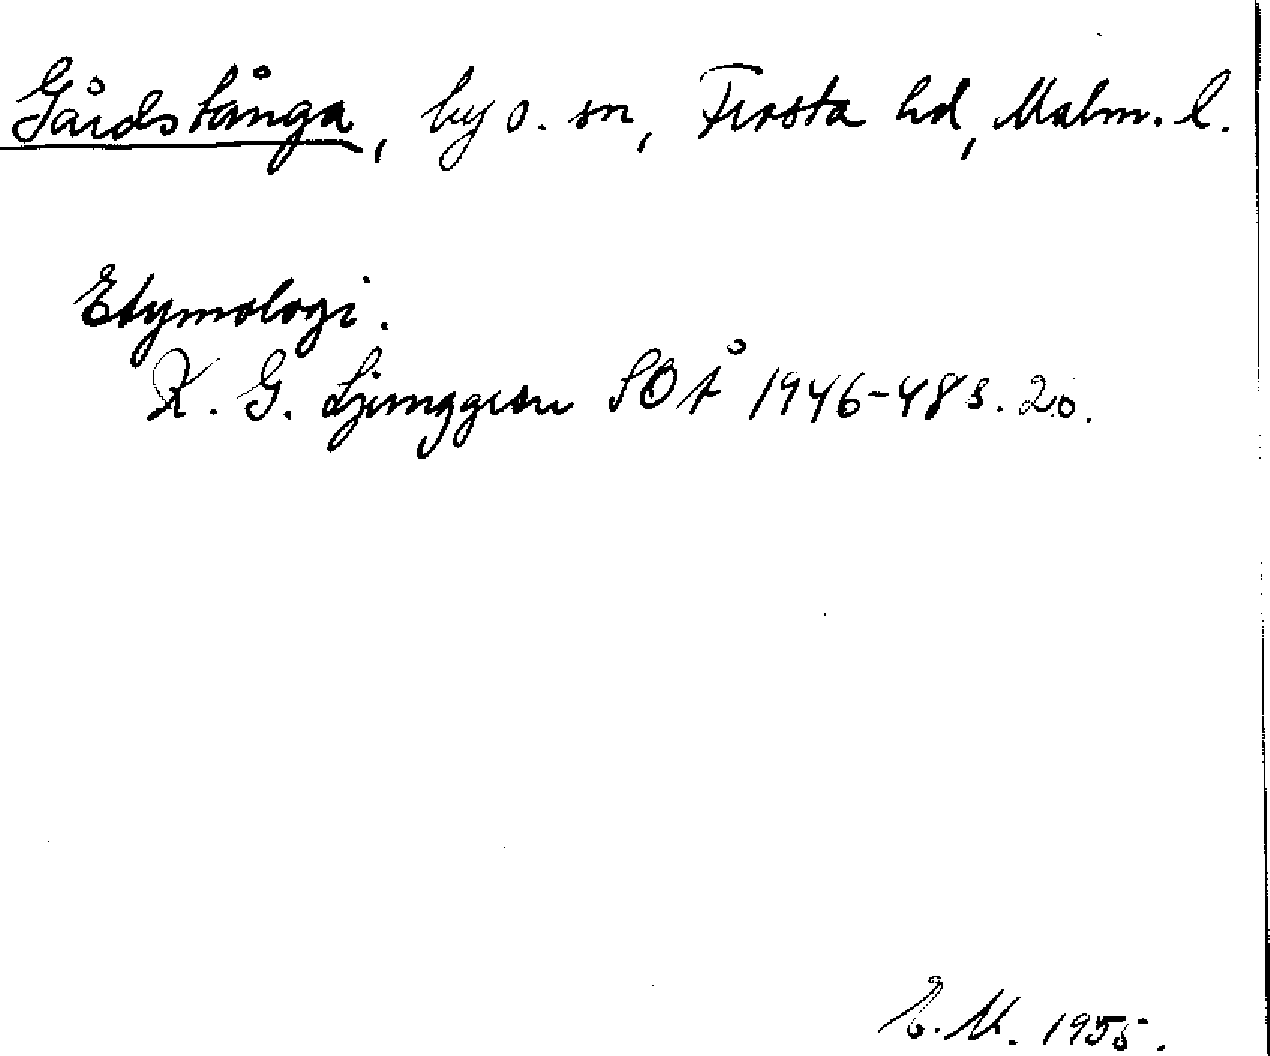 Gårdstånga, by o. sn, Frosta hd, Malm. l.
Etymologi.
K. G. Ljunggren SOÅ 1946-48 s. 20.
E. M. 1955.